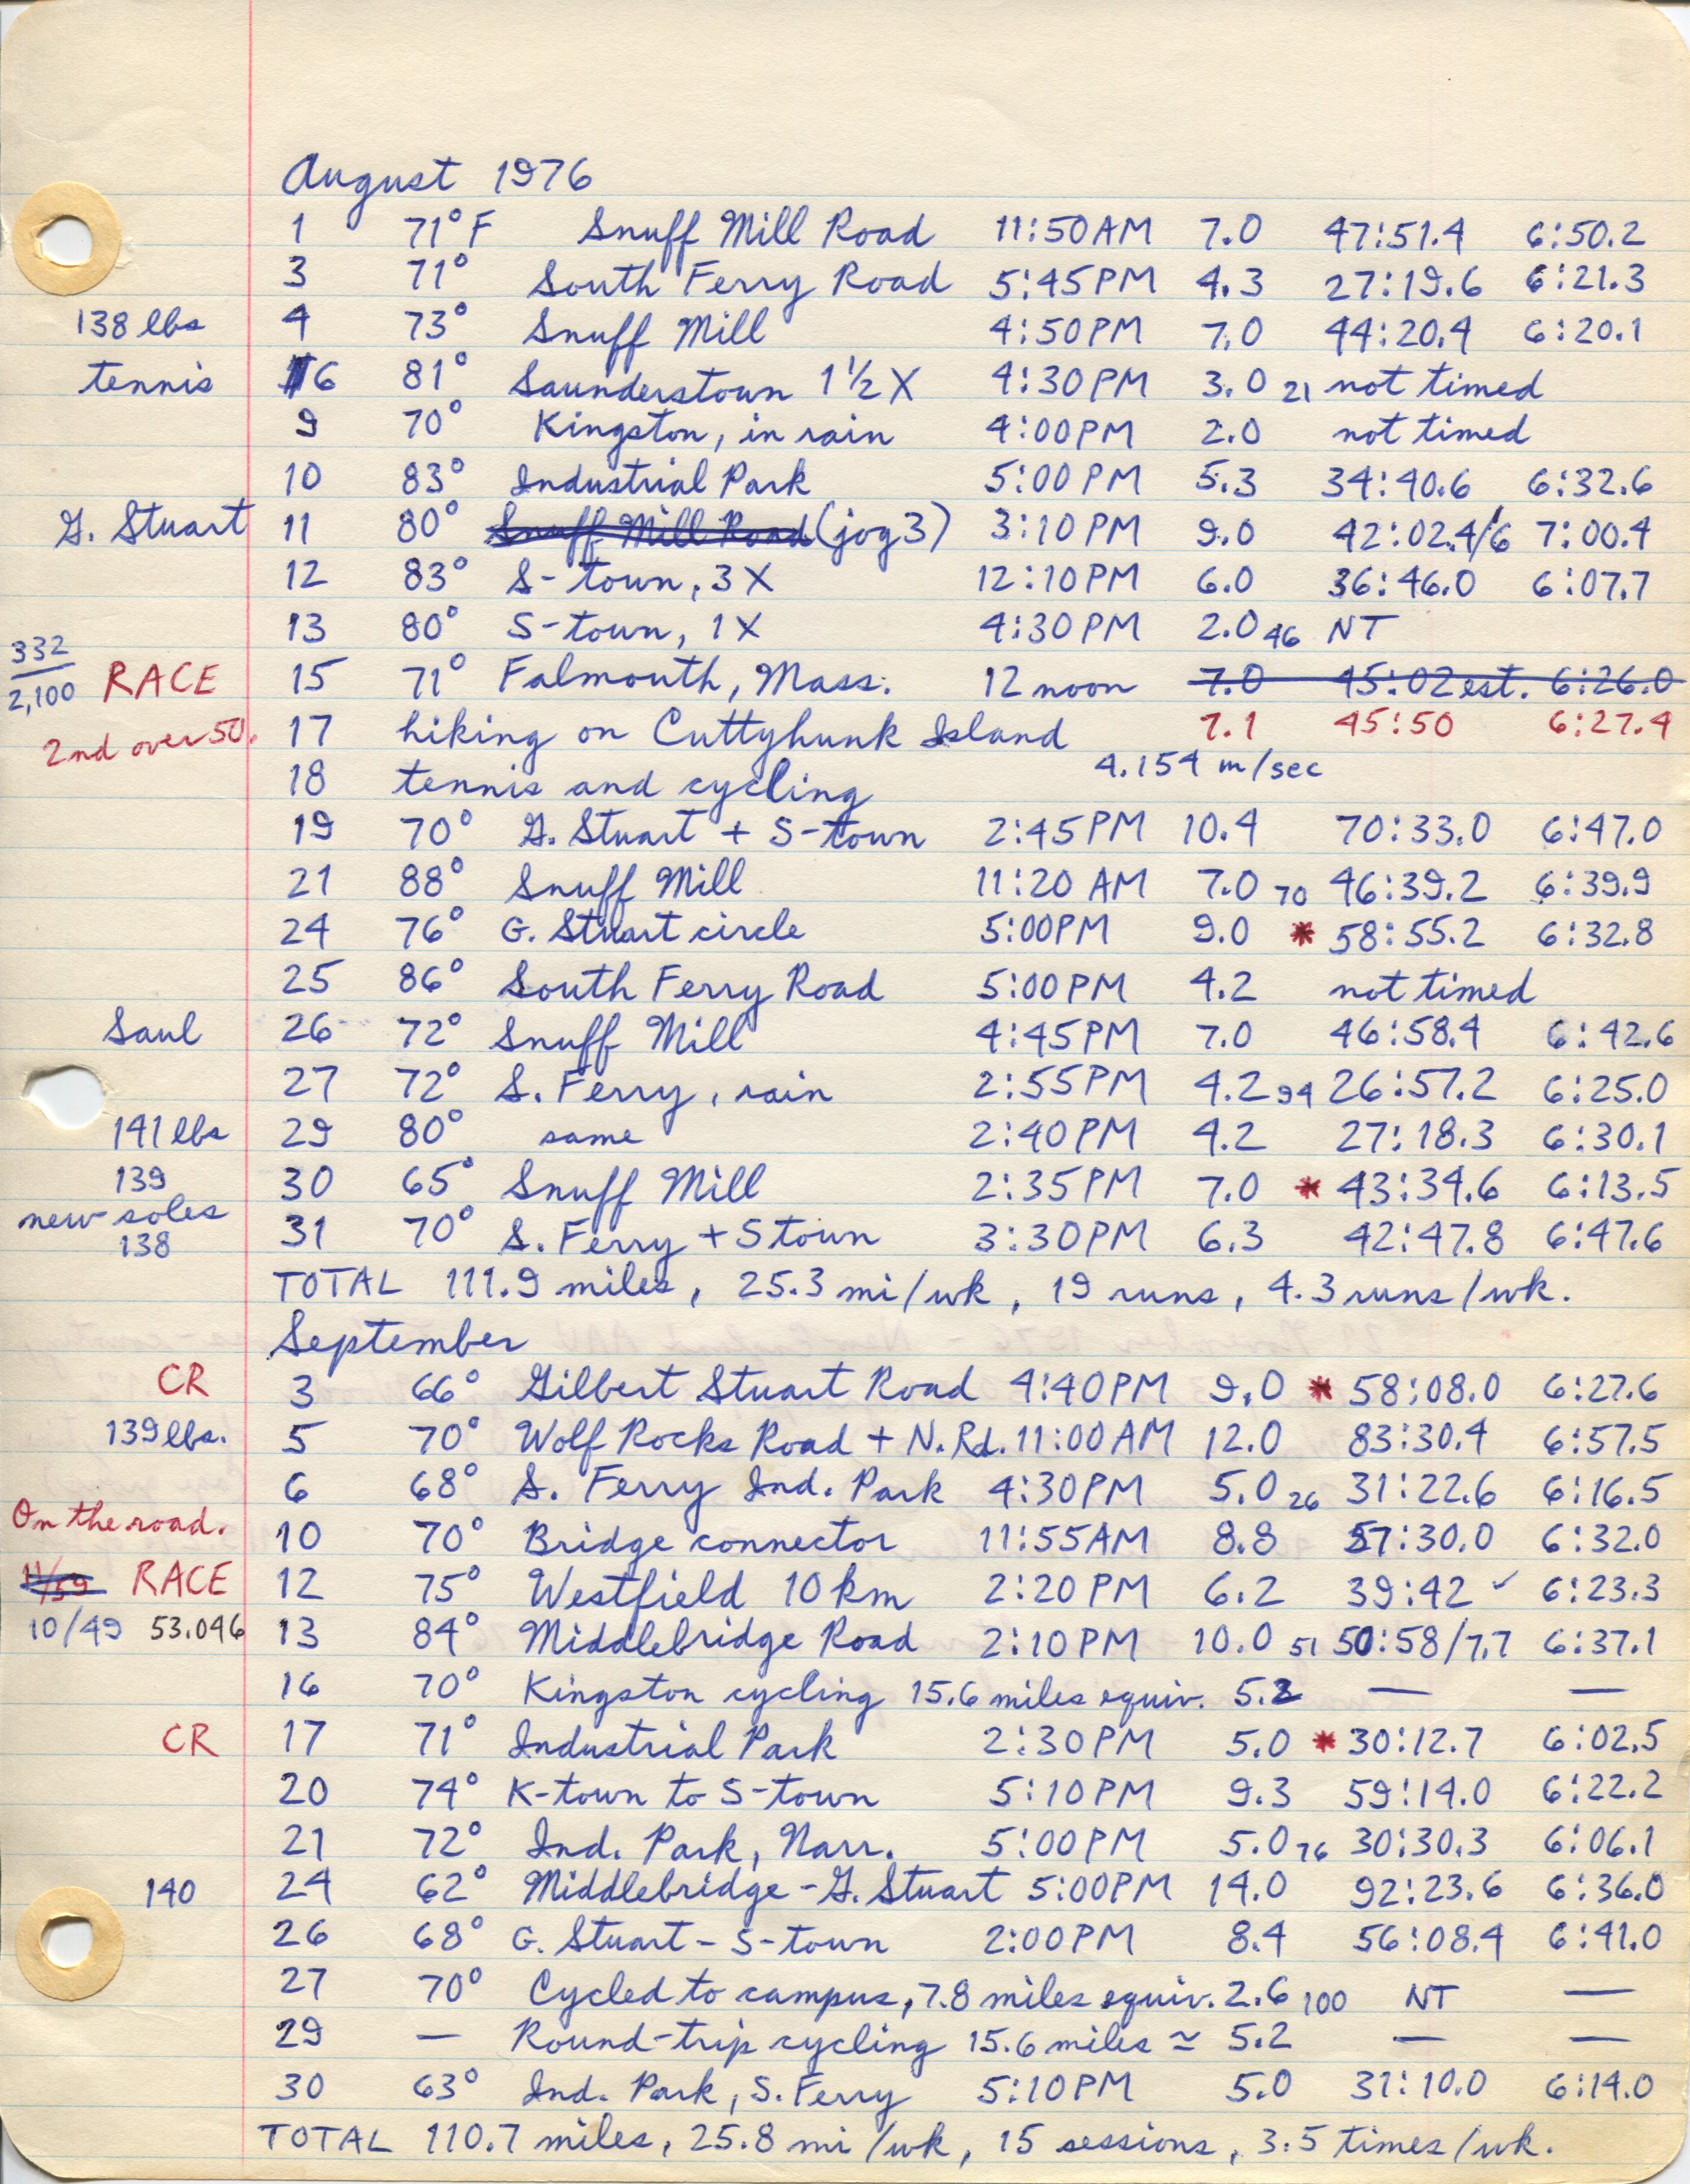 August 1976
1 71° F Snuff Mill Road 11:50 AM 7.0 47:51.4 6:50.2
3 71° South Ferry Road 5:45 PM 4.3 27:19.6 6:21.3
138 lbs 4 73° Snuff Mill 4:50 PM 7.0 44:20.4 6:20.1
tennis 6 81° Saunderstown 1 1/2 X 4:30 PM 3.0 21 not timed
9 70° Kingston, in rain 4:00 PM 2.0 not timed
10 83° Industrial Park 5:00 PM 5.3 34:40.6 6:32.6
G. Stuart 11 80° Snuff Mill Road (jog 3) 3:10 PM 9.0 42:02.4/6 7:00.4
12 83° S-town, 3 X 12:10 PM 6.0 36:46.0 6:07.7
13 80° S-town, 1 X 4:30 PM 2.0 46 NT
332/2,100 RACE 15 71° Falmouth, Mass. 12 noon 7.0 45:02 est. 6:26.0
2nd over 50. 17 hiking on Cuttyhunk Island 7.1 45:50 6:27.4
4.154 m/sec
18 tennis and cycling
19 70° G. Stuart + S-town 2:45 PM 10.4 70:33.0 6:47.0
21 88° Snuff Mill 11:20 AM 7.0 70 46:39.2 6:39.9
24 76° G. Stuart circle 5:00 PM 9.0 * 58:55.2 6:32.8
25 86° South Ferry Road 5:00 PM 4.2 not timed
Saul 26 72° Snuff Mill 4:45 PM 7.0 46:58.4 6:42.6
27 72° S. Ferry, rain 2:55 PM 4.2 94 26:57.2 6:25.0
141 lbs 29 80° same 2:40 PM 4.2 27:18.3 6:30.1
139 30 65° Snuff Mill 2:35 PM 7.0 * 43:34.6 6:13.5
new soles
138 31 70° S. Ferry + S town 3:30 PM 6.3 42:47.8 6:47.6
TOTAL 111.9 miles, 25.3 mi/wk, 19 runs, 4.3 runs/wk.
September
CR 3 66° Gilbert Stuart Road 4:40 PM 9.0 * 58:08.0 6:27.6
139 lbs. 5 70° Wolf Rocks Road + N. Rd. 11:00 AM 12.0 83:30.4 6:57.5
6 68° S. Ferry Ind. Park 4:30 PM 5.0 26 31:22.6 6:16.5
On the road. 10 70° Bridge connector 11:55 AM 8.8 57:30.0 6:32.0
11/59 RACE 12 75° Westfield 10 km 2:20 PM 6.2 39:42 ✓ 6:23.3
10/49 53.046 13 84° Middlebridge Road 2:10 PM 10.0 51 50:58/7.7 6:37.1
16 70° Kingston cycling 15.6 miles equiv. 5.2 — —
CR 17 71° Industrial Park 2:30 PM 5.0 * 30:12.7 6:02.5
20 74° K-town to S-town 5:10 PM 9.3 59:14.0 6:22.2
21 72° Ind. Park, Narr. 5:00 PM 5.0 76 30:30.3 6:06.1
140 24 62° Middlebridge - G. Stuart 5:00 PM 14.0 92:23.6 6:36.0
26 68° G. Stuart - S-town 2:00 PM 8.4 56:08.4 6:41.0
27 70° Cycled to campus, 7.8 miles equiv. 2.6 100 NT —
29 — Round-trip cycling 15.6 miles ≃ 5.2 — —
30 63° Ind. Park, S. Ferry 5:10 PM 5.0 31:10.0 6:14.0
TOTAL 110.7 miles, 25.8 mi/wk, 15 sessions, 3.5 times/wk.